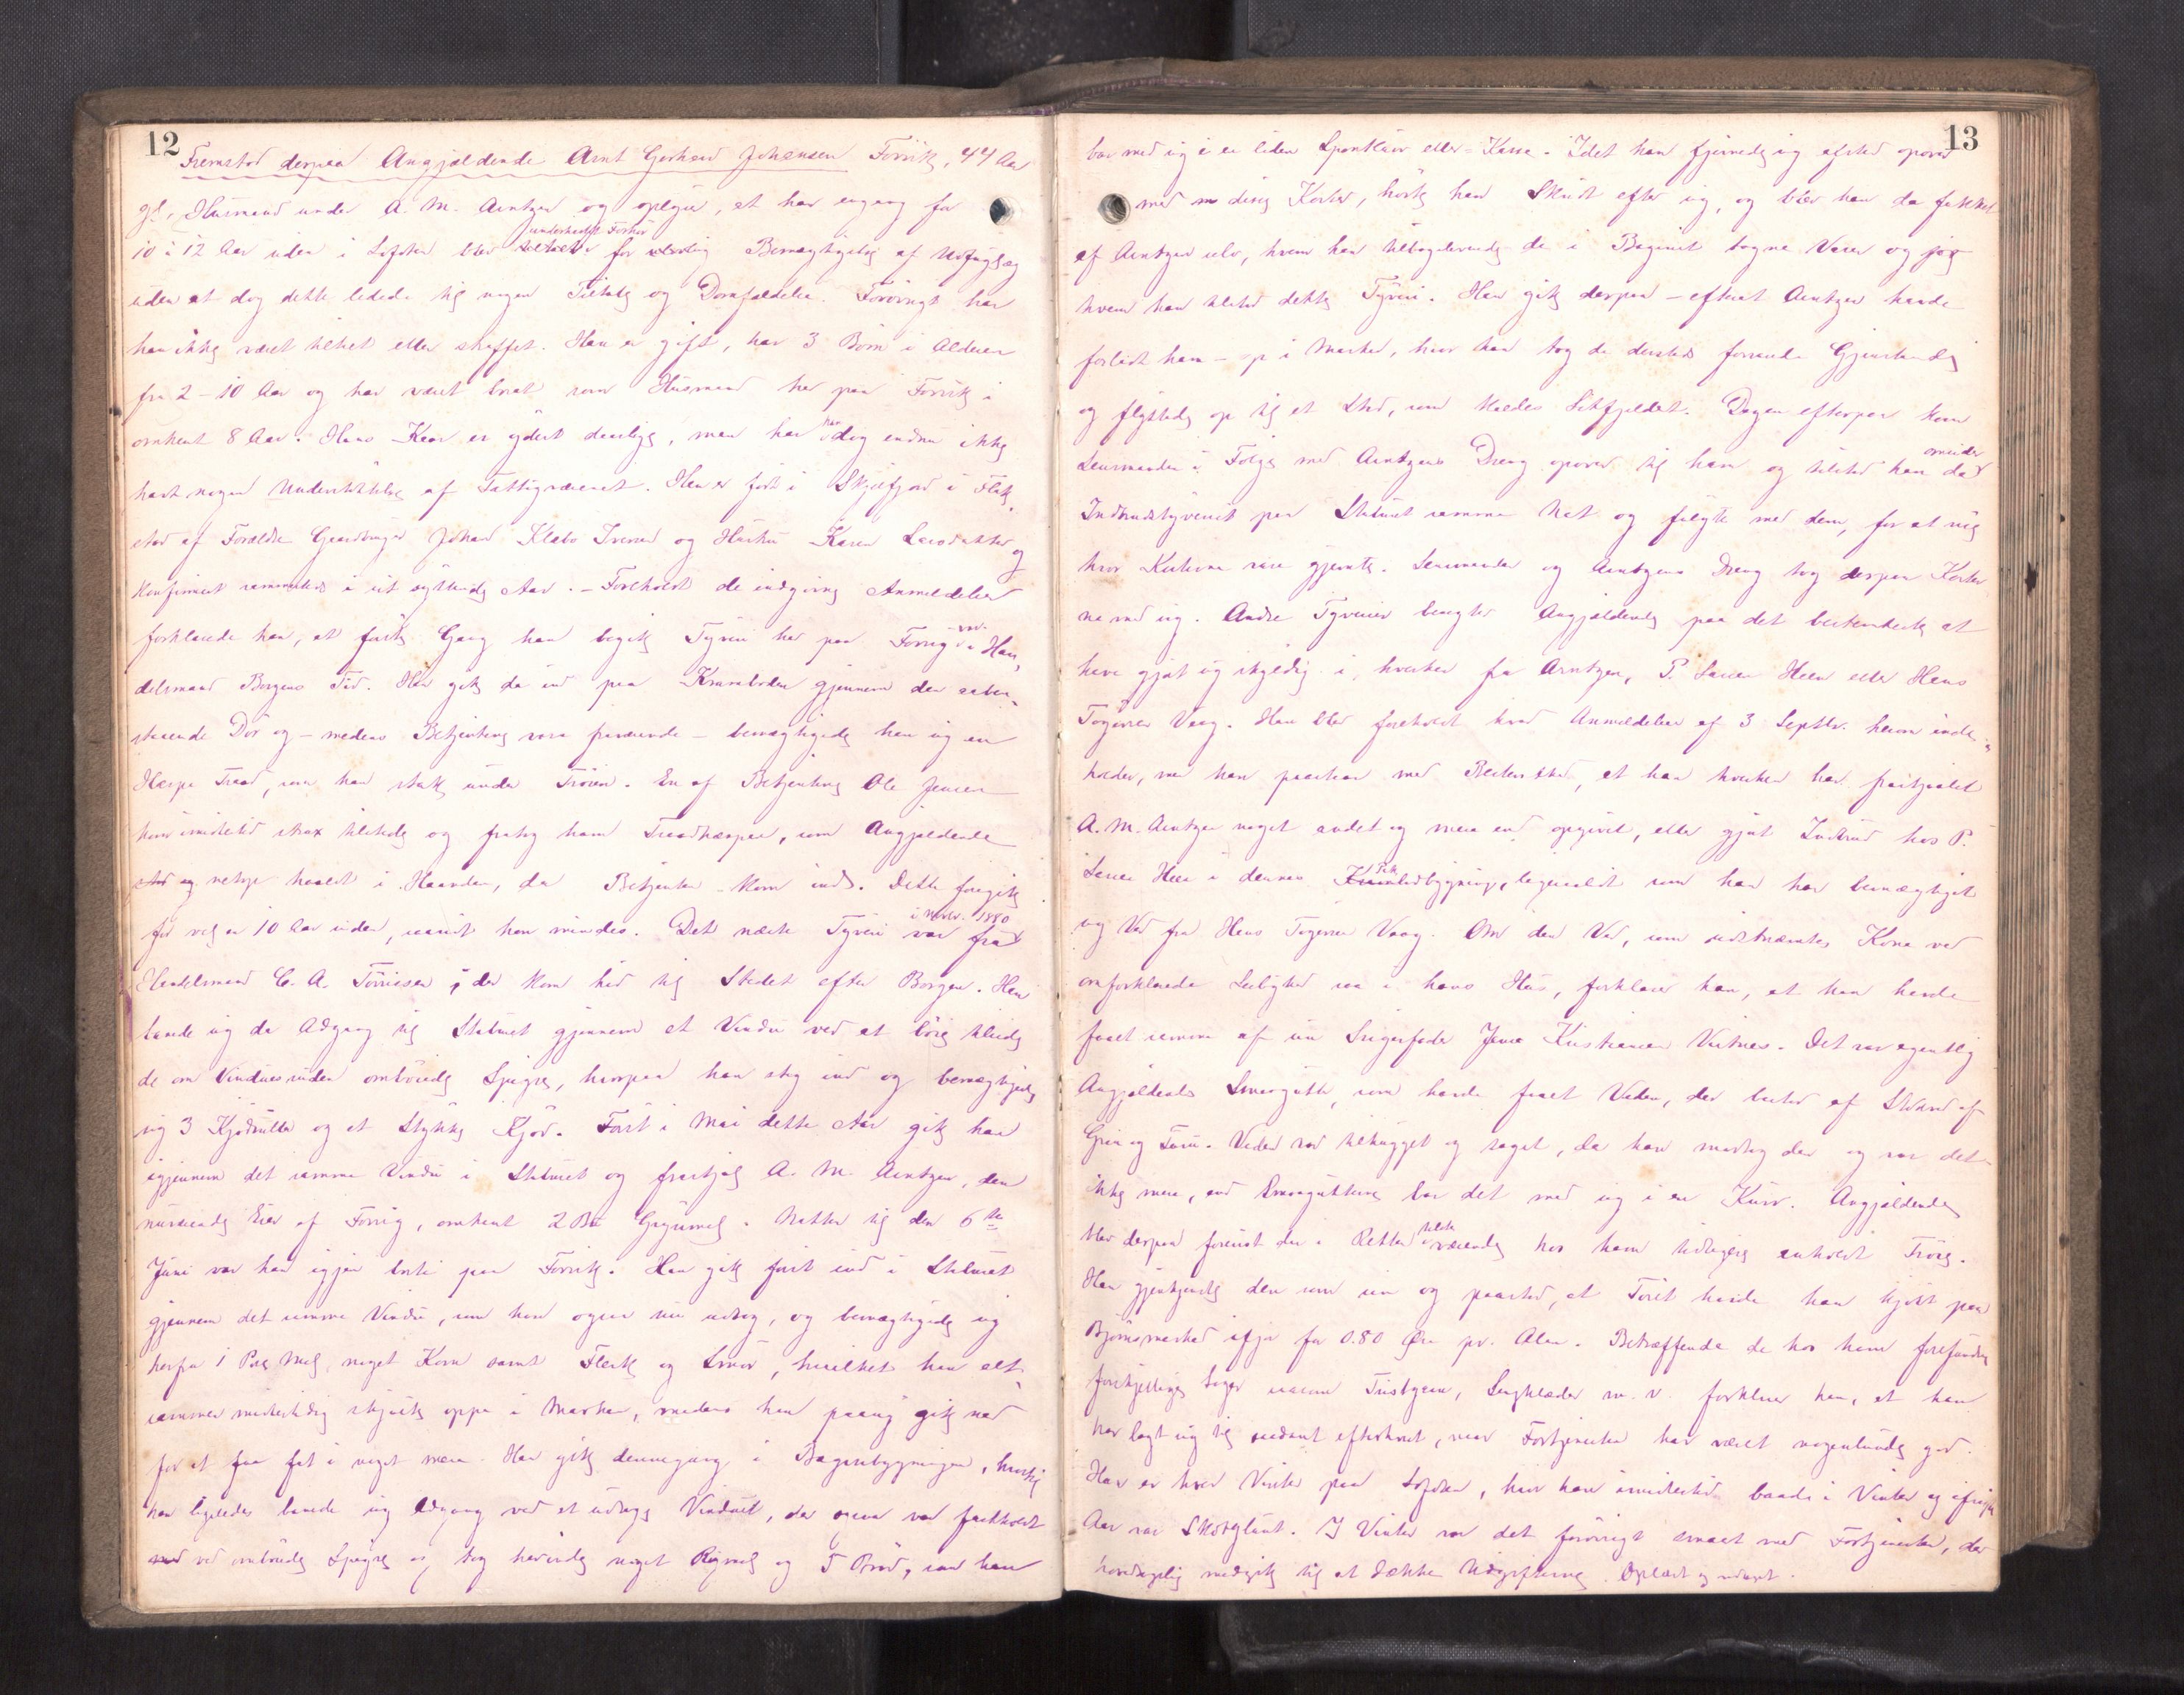 12
Fremstod derpaa Angjældende Arnt Gerhard Johansen Forvik, 44 Aar
gl., Husmand under A. M. Arntzen og opgiver, at han engang for
10 à 12 Aar siden i Lofoten blev underkastet Forhør for Bemægtigelse af
uden at dog dette ledede til nogen Tiltale og Domfældelse. Forøvrigt har
han ikke været tiltalt eller straffet. Han er gift, har 3 Børn i Alderen
fra 2 - 10 Aar og har været bosat som Husmand her paa Forvik i
omkent 8 Aar. Hans Kaar er yderst daarlige, men har han dog endnu ikke
havt nogen Understøttelse af Fattigvæsenet. Han er født i Skjelfjord i Flak-
stad af Forældre Gaardbruger Johan Klæbo Iversen og Hustru Karen Larsdatter og
konfirmert sammesteds i sit syttende Aar. - Foreholdt de indgivne Anmeldelser
forklarede han, at første Gang han begik Tyveri her paa Forvig var i Han-
delsmand Borgens Tid. Han gik da ind paa Krambuden gjennem den aaben-
staaende Dør og - medens Betjentene vare fraværende - bemægtigede han sig en
Hespe Traad, som han stak under Trøien. En af Betjentene Ole Jensen
kom imidlertid strax tilstede og fratog ham Traadhespen, som Angjældende
netop holdt i Haanden, da Betjenten kom ind. Dette foregik
for vel en 10 Aar siden, saavidt han mindes. Det næste Tyveri var i Novbr. 1880 fra
Handelsmand C. A. Tønnesen, der kom hid til Stedet efter Borgen. Han
banede sig da Adgang til Staburet gjennem et Vindu ved at bøie tilside
de om Vinduesruden ombøiede Spigre, hvorpaa han steg ind og bemægtigede
sig 3 Kjødruller og et Stykke Kjød. Først i Mai dette Aar gik han
igjennem det samme Vindu i Staburet og frastjal A. M. Arntzen, den
nuværende Eier af Forvig, omkent 2 Bø Grynmel. Natten til den 6te
Juni var han igjen borte paa Forvik. Han gik først ind i Staburet
gjennem det samme Vindu, som han ogsaa nu udtog, og bemægtigede sig
herfra 1 Pose Mel, noget Korn samt Flesk og Smør, hvilket han alt-
sammen midlertidig skjulte oppe i Marken, medens han paany gik ned
for at faa fat i noget mere. Han gik dennegang i Bageribygningen, hvortil
han ligeledes banede sig Adgang ved at udtage Vinduet, der ogsaa var fastholdt
ved ombøiede Spigre og tog herinde noget Rugmel og 5 Brød, som han
13
bar med sig i en liden Sponkurv eller Kasse. Idet han fjernede sig afsted opover
med disse Koster, hørte han Skridt efter sig, og blev han da fakket
af Arntzen selv, hvem han tilbageleverede de i Bageriet tagne Varer og
hvem han tilstod dette Tyveri. Han gik derpaa - efterat Arntzen havde
forladt ham - op i Marken, hvor han tog de dersteds forvarede Gjenstande
og flyttede op til et Sted, som kaldes Sitfjeldet. Dagen efterpaa kom
Lensmanden i Følge med Arntzens Dreng opover til ham og tilstod han da omsider
Indbrudstyveriet paa Staburet samme Nat og fulgte med dem, for at vise
hvor Kosterne vare gjemte. Lensmanden og Arntzens Dreng tog derpaa Koster-
ne med sig. Andre Tyverier benegter Angjældende paa det bestemteste at
have gjort sig skyldig i, hverken fra Arntzen, P. Larsen Heen eller Hans
Togersen Vaag. Han blev foreholdt hvad Anmeldelsen af 3 Septbr. herom inde-
holder, men han paastaar med Bestemthed, at han hverken har frastjaalet
A. M. Arntzen noget andet og mere end opgivet, eller gjort Indbrud hos P.
Larsen Heen i dennes bygning, ligesaalidt som han har bemægtiget
sig Ved fra Hans Togersen Vaag. Om den Ved, som sidstnævntes Kone ved
omforklarede Leilighed saa i hans Hus, forklarer han, at han havde
faaet samme af sin Svigerfader Jens Kristiansen Vistnes. Det var egentlig
Angjældendes Smaagutter, som havde faaet Veden, der bestod af Stuver af
Gran og Furu. Veden var tilhugget og saget, da han modtog den og var det
ikke mere, end Smaaguttene bar det med sig i en Kurv. Angjældende
blev derpaa forevist den i Retten tilstedeværende hos ham tidligere anholdt Trøie.
Han gjenkjendte den som sin og paastod, at Tøiet havde han kjøbt paa
Bjørnsmarked ifjor for 0.80 Øre pr. Alen. Betræffende de hos ham forefundne
forskjellige Sager saasom Fiskegarn, Sengklæder m. v. forklarer han, at han
har lagt sig til saadant efterhvert, naar Fortjenesten har været nogenlunde god.
Han er hver Vinter paa Lofoten, hvor han imidlertid baade i Vinter og ifjor
Aar var Skotglunt. I Vinter var det forøvrigt smaat med Fortjenesten, der
hovedsagelig medgik til at dække Udgifterne. Oplæst og vedtaget.